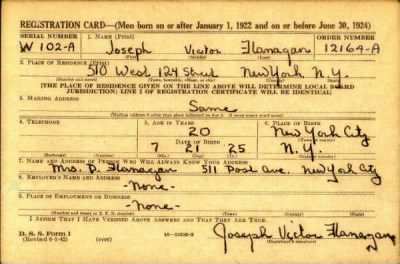 REGISTRATION CARD—(Men born on or after January 1, 1922 and on or before June 30, 1924)
SERIAL NUMBER 1. NAME (Print) ORDER NUMBER
W 102-A Joseph Victor Flanagan 12164-A
(First) (Middle) (Last)
2. PLACE OF RESIDENCE (Print)
510 West 124 Street New York N.Y.
(Number and street) (Town, township, village, or city) (County) (State)
[THE PLACE OF RESIDENCE GIVEN ON THE LINE ABOVE WILL DETERMINE LOCAL BOARD
JURISDICTION; LINE 2 OF REGISTRATION CERTIFICATE WILL BE IDENTICAL]
3. MAILING ADDRESS
Same
(Mailing address if other than place indicated on line 2. If same insert word same)
4. TELEPHONE 5. AGE IN YEARS 6. PLACE OF BIRTH
20 New York City
DATE OF BIRTH (Town or county)
7 21 25 N.Y.
(Exchange) (Number) (Mo.) (Day) (Yr.) (State or country)
7. NAME AND ADDRESS OF PERSON WHO WILL ALWAYS KNOW YOUR ADDRESS
Mrs. P. Flanagan 511 Post Ave. New York City
8. EMPLOYER'S NAME AND ADDRESS
-None-
9. PLACE OF EMPLOYMENT OR BUSINESS
-None-
(Number and street or R. F. D. number) (Town) (County) (State)
I AFFIRM THAT I HAVE VERIFIED ABOVE ANSWERS AND THAT THEY ARE TRUE.
D. S. S. Form 1
(Revised 6-1-42) (over)
Joseph Victor Flanagan
(Registrant's signature)